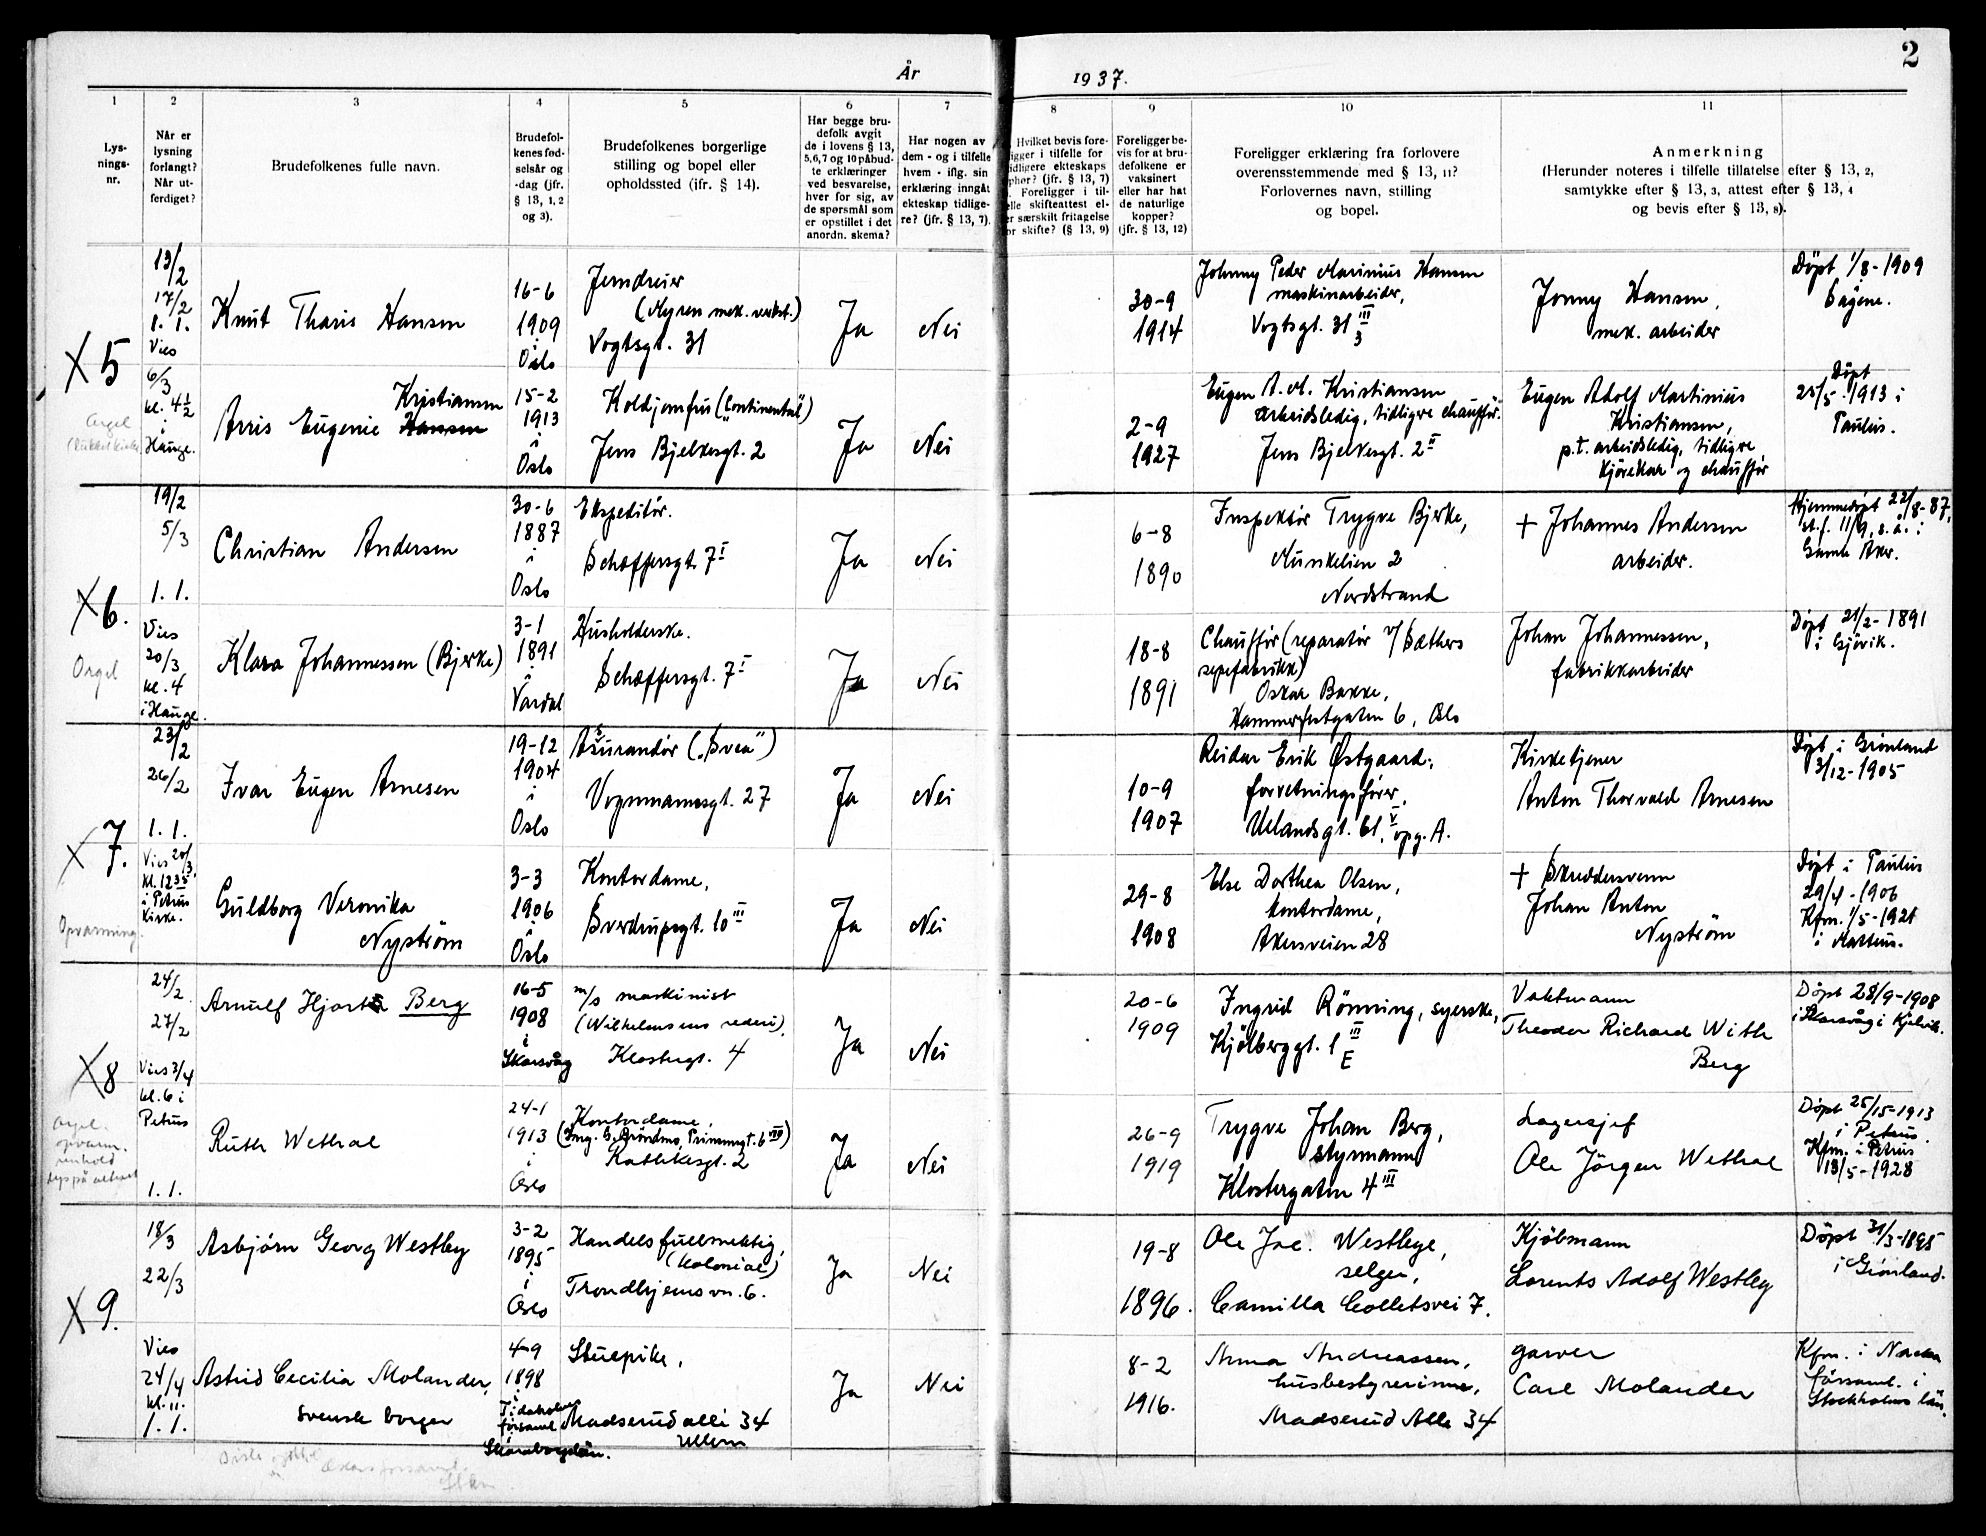 2
År 1937.
1 2 3 4 5 6 7 8 9 10 11
Lys-
nings-
nr.
Når er
lysning
forlangt?
Når ut-
ferdiget?
Brudefolkenes fulle navn.
Brudefol-
kenes fød-
selsår og
-dag (jfr.
§ 13, 1, 2
og 3).
Brudefolkenes borgerlige
stilling og bopel eller
opholdssted (jfr. § 14).
Har begge bru-
defolk avgit
de i lovens § 13,
5,6,7 og 10 påbud-
te erklæringer
ved besvarelse,
hver for sig, av
de spørsmål som
er opstillet i det
anordn. skema?
Har nogen av
dem - og i tilfelle
hvem - iflg. sin
erklæring inngått
ekteskap tidlige-
re? (jfr. § 13, 7).
Hvilket bevis fore-
ligger i tilfelle for
tidligere ekteskaps
ophør? (jfr. § 13, 7)
Foreligger i til-
felle skifteattest el-
ler særskilt fritagelse
for skifte? (§ 13, 9)
Foreligger be-
vis for at bru-
defolkene er
vaksinert
eller har hat
de naturlige
kopper?
(jfr. § 13, 12)
Foreligger erklæring fra forlovere
overensstemmende med § 13, 11?
Forlovernes navn, stilling
og bopel.
Anmerkning
(Herunder noteres i tilfelle tillatelse efter § 13, 2,
samtykke efter § 13, 3, attest efter § 13, 4
og bevis efter § 13, 8).
X 5
Orgel
13/2
17/2
1. 1.
Vies
6/3
kl. 4 1/2
i
Hauge.
Knut Tharis Hansen
16-6
1909
i
Oslo
Jerndreier
(Myren mek. verkst.)
Vogtsgt. 31
Ja
Nei
30-9
1914
Johnny Peder Marinius Hansen
maskinarbeider,
Vogtsgt. 31 III
3
Jonny Hansen,
mek. arbeider
Döpt 1/8-1909
Sagene.
Kristiansen
Arris Eugenie Hansen
15-2
1913
i
Oslo
Koldjomfru ("Continental")
Jens Bjelkesgt. 2
Ja
Nei
2-9
1927
Eugen A. M. Kristiansen
arbeidsledig, tidligre chauffør.
Jens Bjelkesgt. 2 II
Eugen Adolf Martinius
Kristiansen,
p.t. arbeidsledig, tidligre
kjørekar og chauffør
Döpt
25/5-1913 i
Paulus.
X 6.
Orgel
19/2
5/3
1. 1.
Vies
20/3
kl. 4
i Hauge.
Christian Andersen
30-6
1887
i
Oslo
Ekspeditør.
Schæffersgt. 7 I
Ja
Nei
6-8
1890
Inspektør Trygve Bjerke,
Munkelien 2
Nordstrand
+ Johannes Andersen
arbeider.
Hjemmedöpt 22/8-87,
st.f. 11/9, s.å. i
Gamle Aker.
Klara Johannessen (Bjerke)
3-1
1891
i
Vardal
Husholderske.
Schæffersgt. 7 I
Ja
Nei
18-8
1891
Chauffør (reparatør v/ Sæthers
sepefabrikk)
Oskar Bakke,
Hammerfestgaten 6, Oslo
Johan Johannessen,
fabrikkarbeider
Döpt 21/2-1891
i Gjövik.
X 7.
Opvarming.
23/2
26/2
1. 1.
Vies 20/3,
kl. 12 35
i Petrus
Kirke.
Ivar Eugen Arnesen
19-12
1904
i
Oslo
Assurandør ("Svea")
Vognmannsgt. 27
Ja
Nei
10-9
1907
Reidar Erik Østgaard,
forretningsfører,
Uelandsgt. 61 V, opg. A.
Kirketjener
Anton Thorvald Arnesen
Döpt i Grönland
3/12-1905
Guldborg Veronika
Nyström
3-3
1906
i
Oslo
Kontordame,
Sverdrupsgt. 10 III
Ja
Nei
29-8
1908
Else Dorthea Olsen,
kontordame,
Akersveien 28
+ Skreddersvenn
Johan Anton
Nyström
Döpt i Paulus
29/4-1906
Kfm. 1/5-1921
i Matteus.
X 8
Orgel.
opvarm.
24/2
27/2
Vies 3/4
kl. 6 i
Petrus
1. 1.
Arnulf Hjorth Berg
16-5
1908
i
Skarsvåg
m/s maskinist
(Wilhelmsens rederi),
Klostergt. 4
Ja
Nei
20-6
1909
Ingrid Rönning, syerske,
Kjölberggt. 1 III
E
Vaktmann
Theodor Richard With
Berg
Döpt 28/9-1908
i Skarsvåg i Kjelvik.
Ruth Wethal
24-1
1913
i
Oslo
Kontordame,
Ja
Nei
26-9
1919
Trygve Johan Berg,
styrmann
Klostergaten 4 III
Lagersjef
Ole Jörgen Wethal
i Petrus.
Kfm. i Petrus
13/5-1928
X 9.
18/3
22/3
Vies
24/4
kl. 11.
1. 1.
Asbjørn Georg Westby
3-2
1895
i
Oslo
Handelsfullmektig,
(kolonial)
Trondhjemsvn. 6.
Ja
Nei
19-8
1896.
Ole Jac. Westbye,
selger,
Camilla Colletsvei 7.
Kjöbmann
Lorents Adolf Westby
Döpt 31/3-1895
i Grönland.
Astrid Cecilia Molander,
svensk borger
4-9
1898
i
Tidaholms
församl.
Skaraborgslän.
Stuepike,
Madserud allé 34
Ullern
Ja
Nei
8-2
1916.
Anna Andreassen,
husbestyrerinne,
Madserud Allé 34
garver
Carl Molander
Kfm. i Nacka
församl. i
Stockholms län.